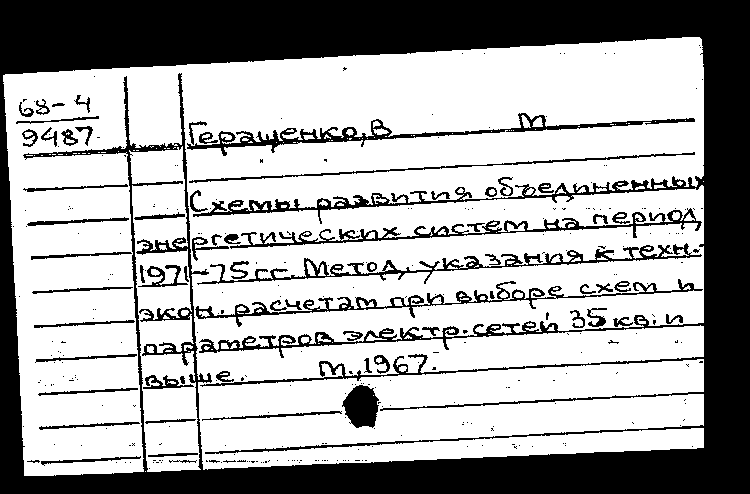 68-4
9487
Геращенко, В т
Схемы развития объединенных
энергетических систем на период
1971-75 гг. Метод. указания к техн.-
экон. расчетам при выборе схем и
параметров электр. сетей 35 кв. и
выше. т., 1967.